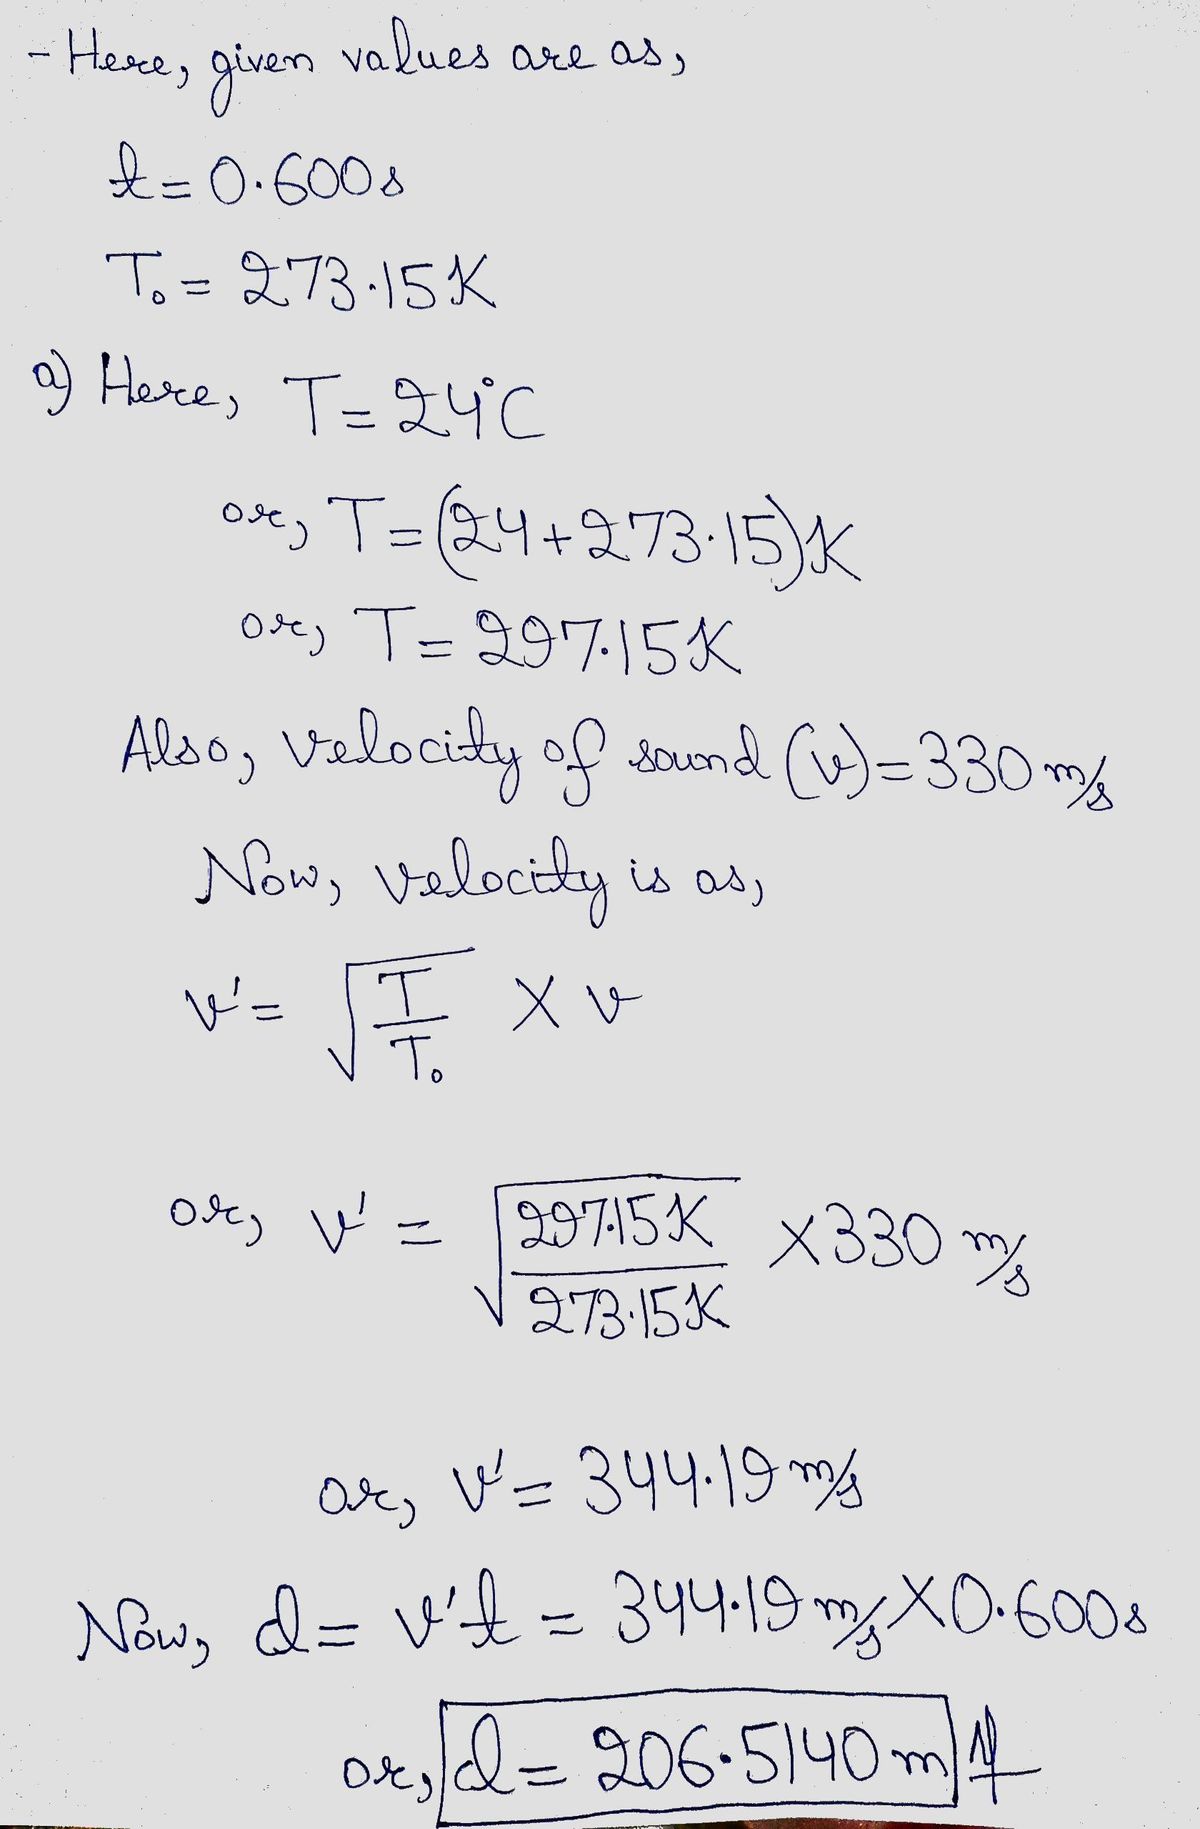 - Here, given values are as,
t = 0.600s
T₀ = 273.15K
a) Here, T = 24°C
or, T = (24+273.15)K
or, T = 297.15K
Also, velocity of sound (v) = 330 m/s
Now, velocity is as,
v' = √(T/T₀) × v
or, v' = √(297.15K/273.15K) × 330 m/s
or, v' = 344.19 m/s
Now, d = v't = 344.19 m/s × 0.600s
or, d = 206.5140 m